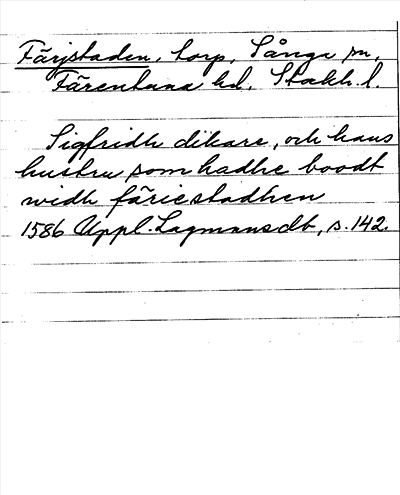 Färjstaden, torp, Sånga sn,
Färentuna hd, Stokh. l.
Sigfridh dikare, och hans
hustru som hadhe boodt
widh färiestadhen
1586 Uppl. Lagmansdb, s. 142.